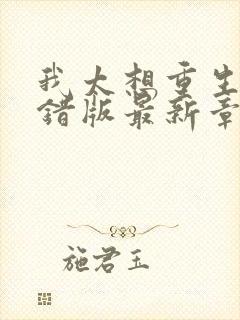 我太想重生
错版最新章
施君玉